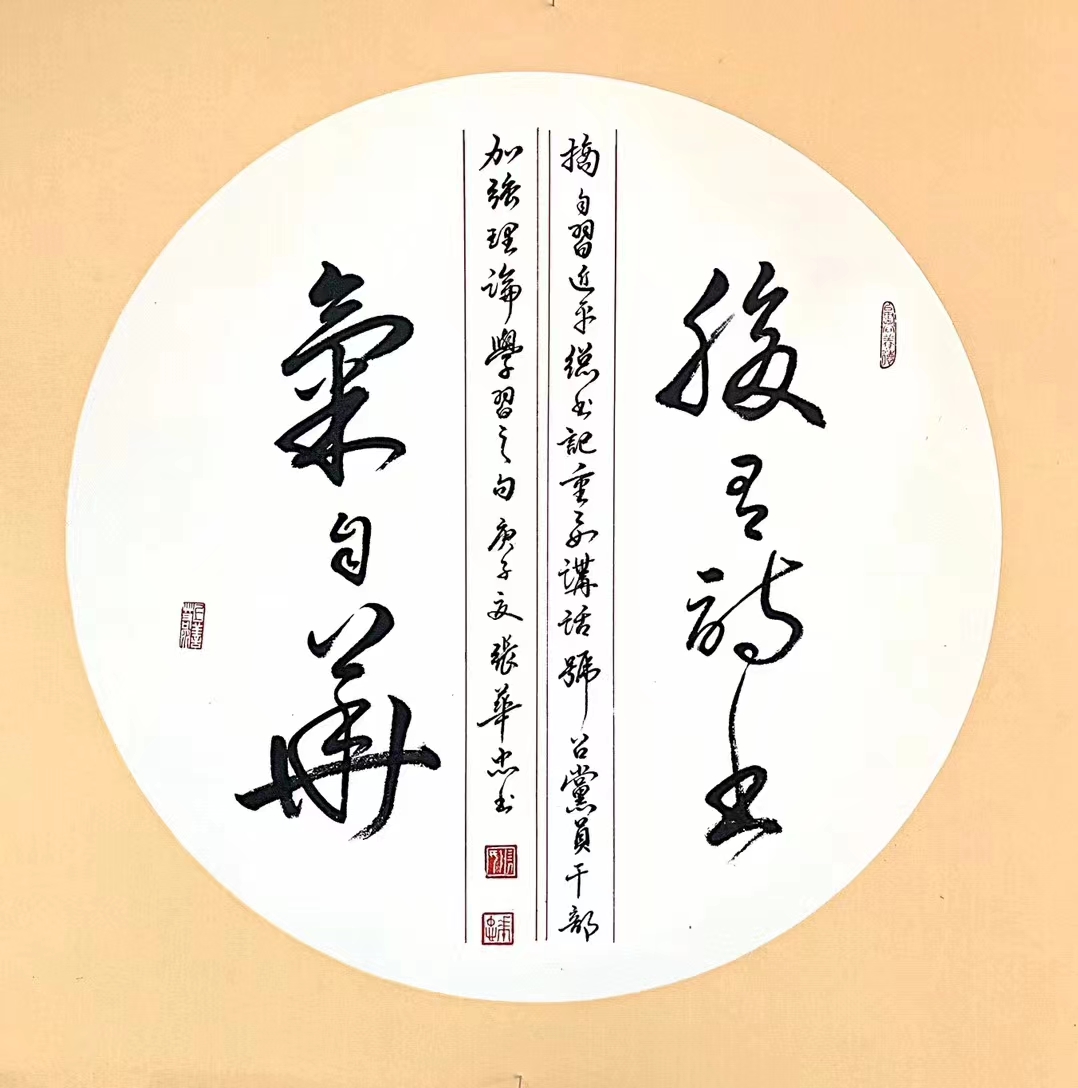 腹有詩書
氣自華
摘自習近平總書記重要講話號召黨員干部
加強理論學習之句庚子夏張華忠書